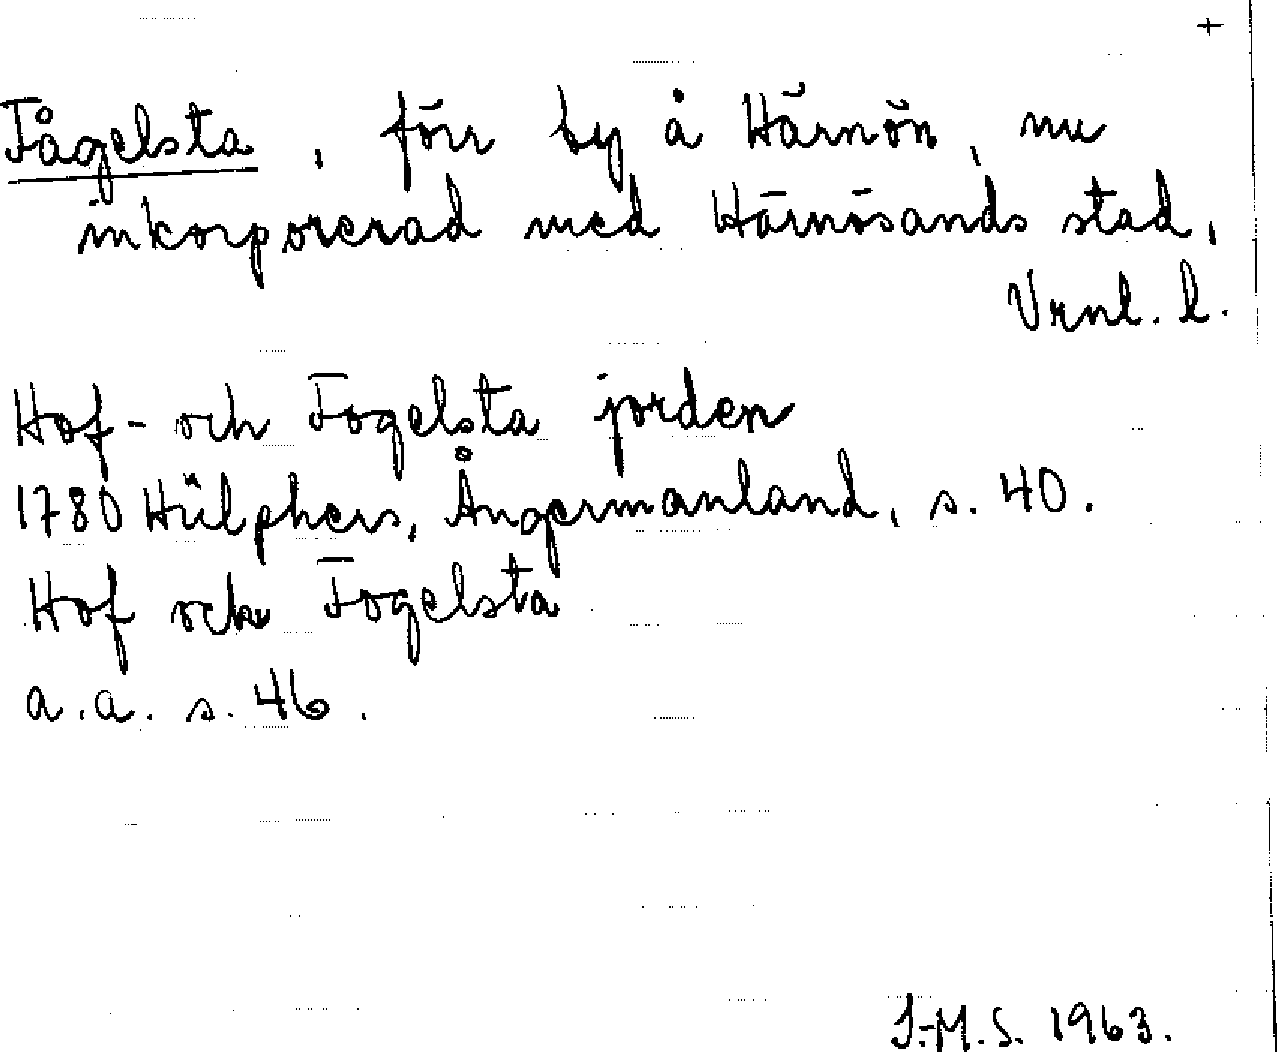 +
Fågelsta, förr by å Härnön, nu
inkorporerad med Härnösands stad,
Vrnl. l.
Hof- och Fogelsta jorden
1780 Hülphers, Ångermanland, s. 40.
Hof och Fogelsta
a.a. s. 46.
I.-M.S. 1963.